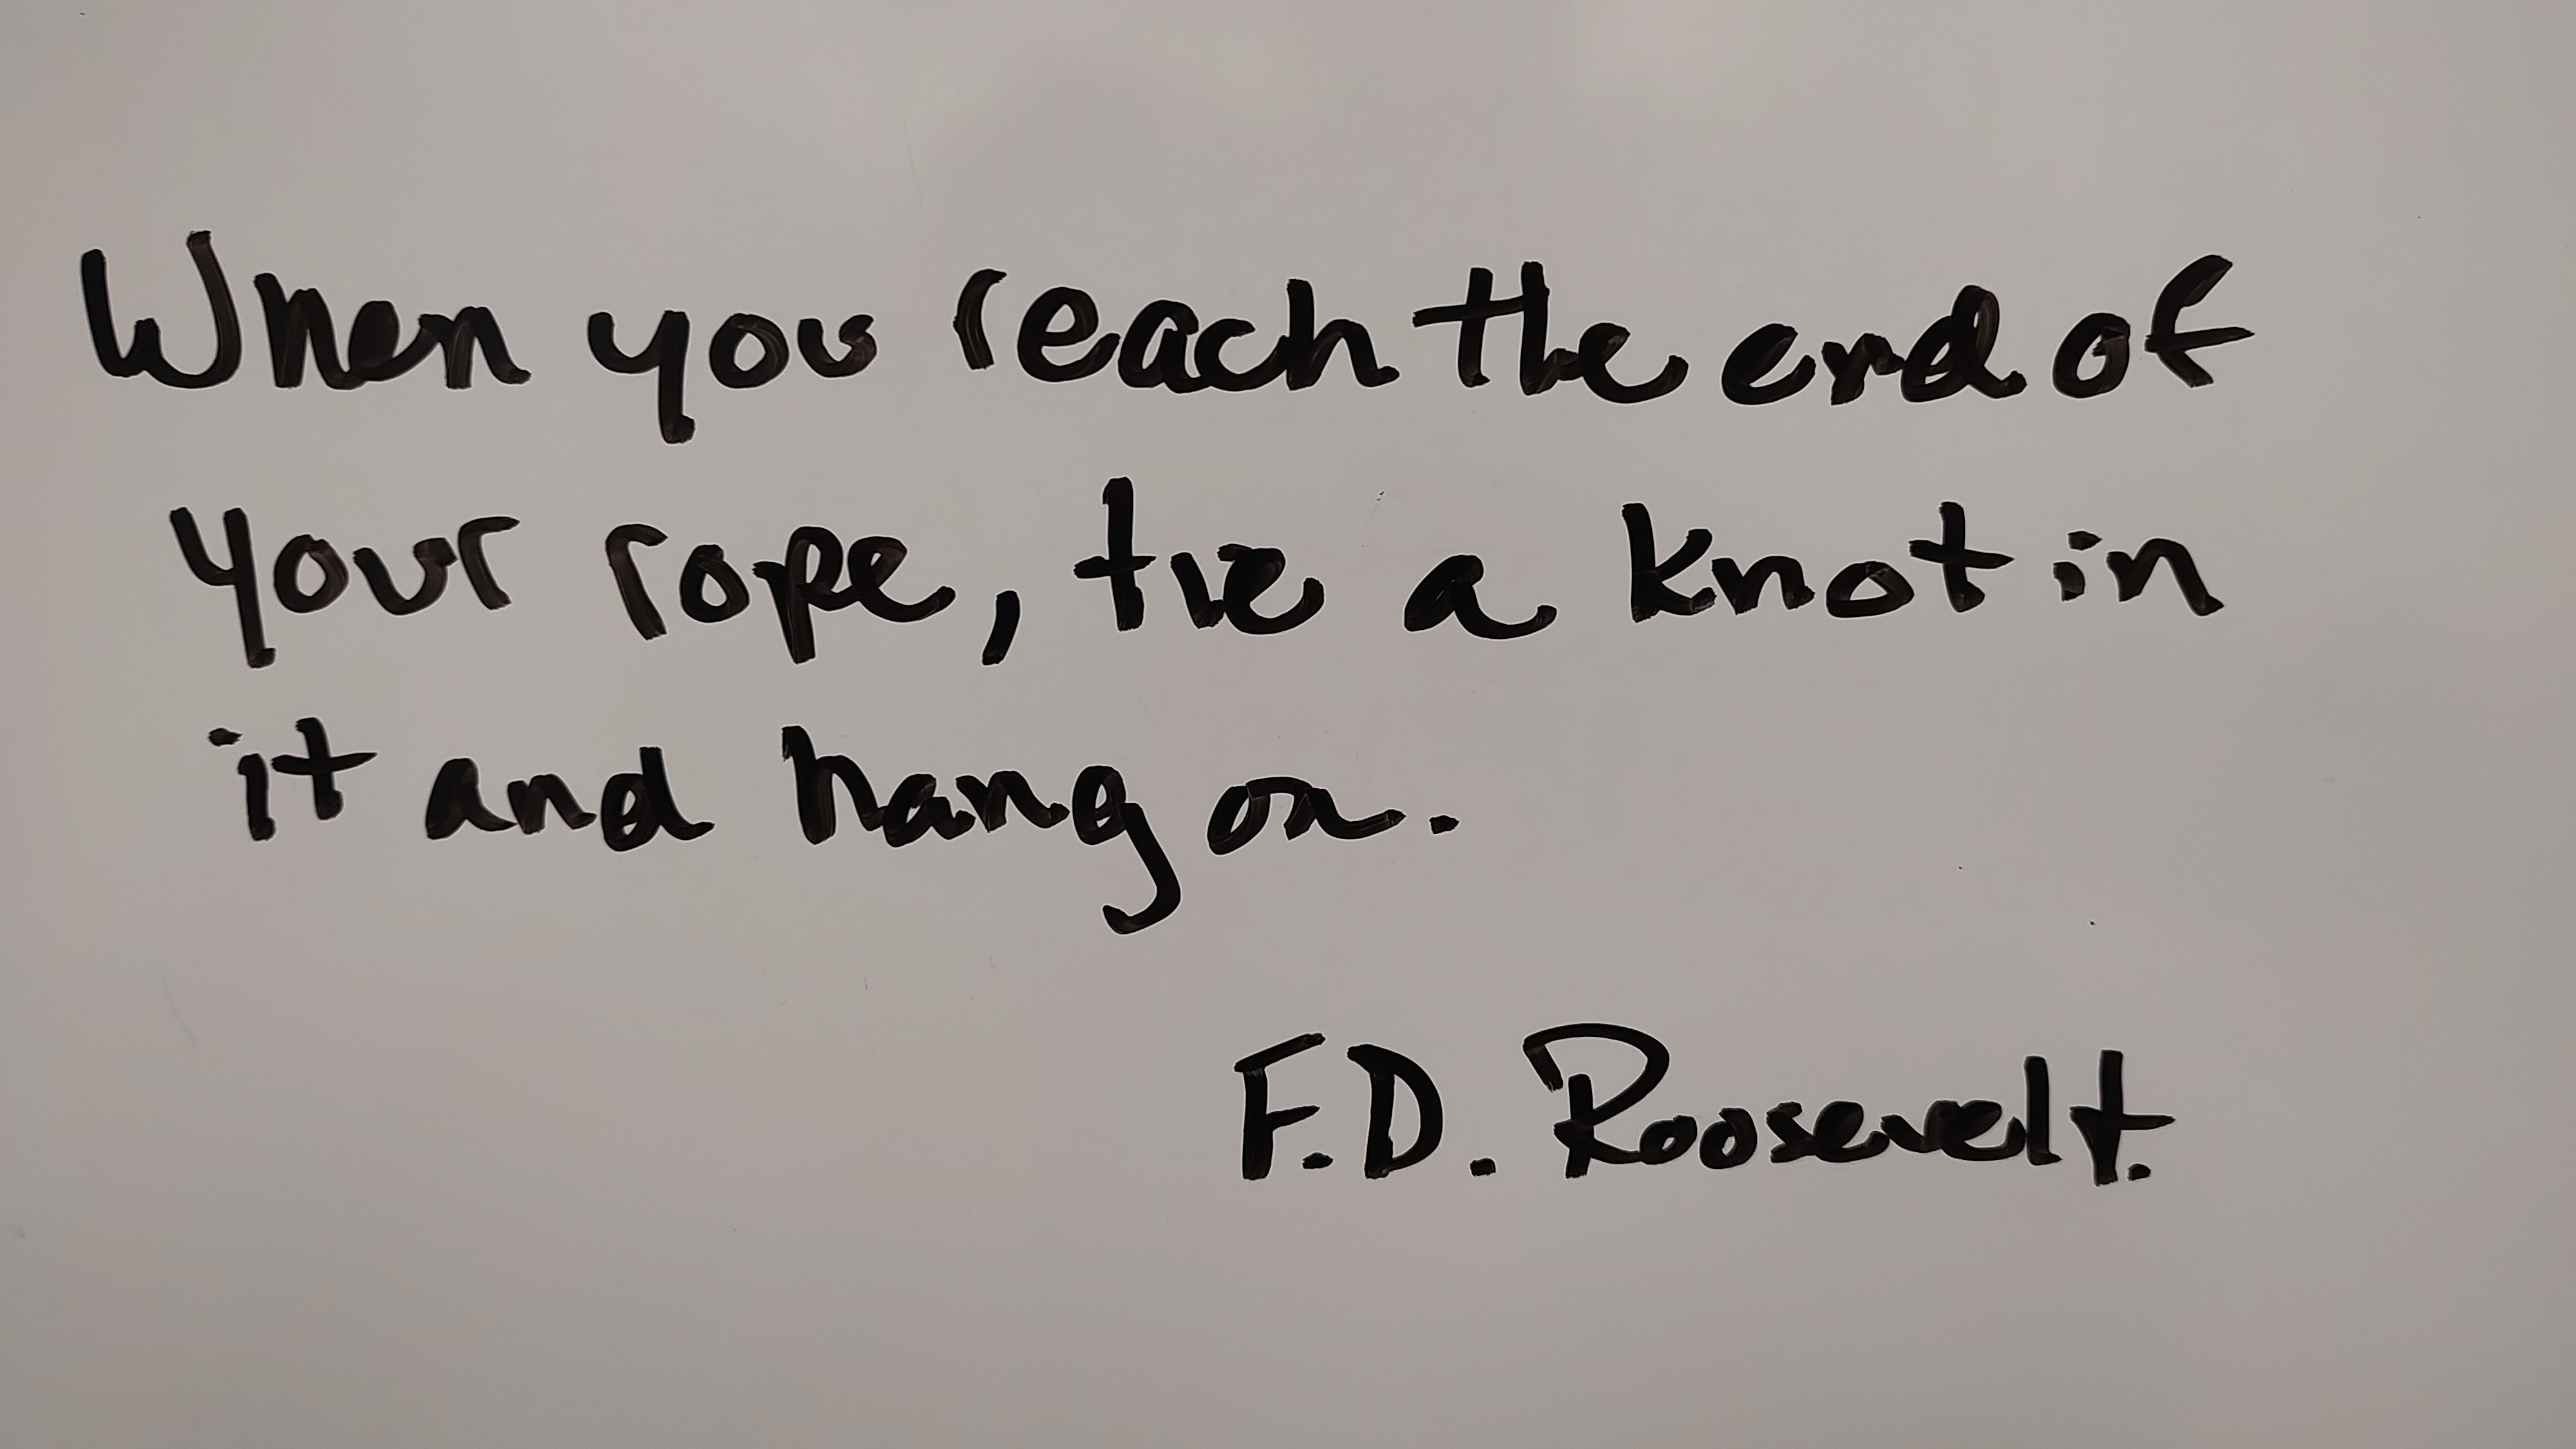 When you reach the end of
your rope, tie a knot in
it and hang on.
F.D. Roosevelt.